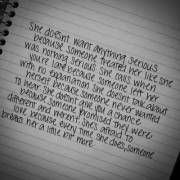 She doesn't want anything serious
because someone treated her like she
was nothing serious. She says when
you're late because someone left her
with no explanation. She doesn't talk about
herself because someone never wanted
to hear. She doesn't give out a chance
because someone promised they were
different and weren't. She's afraid to
love because every time she does, someone
breaks her a little bit more.